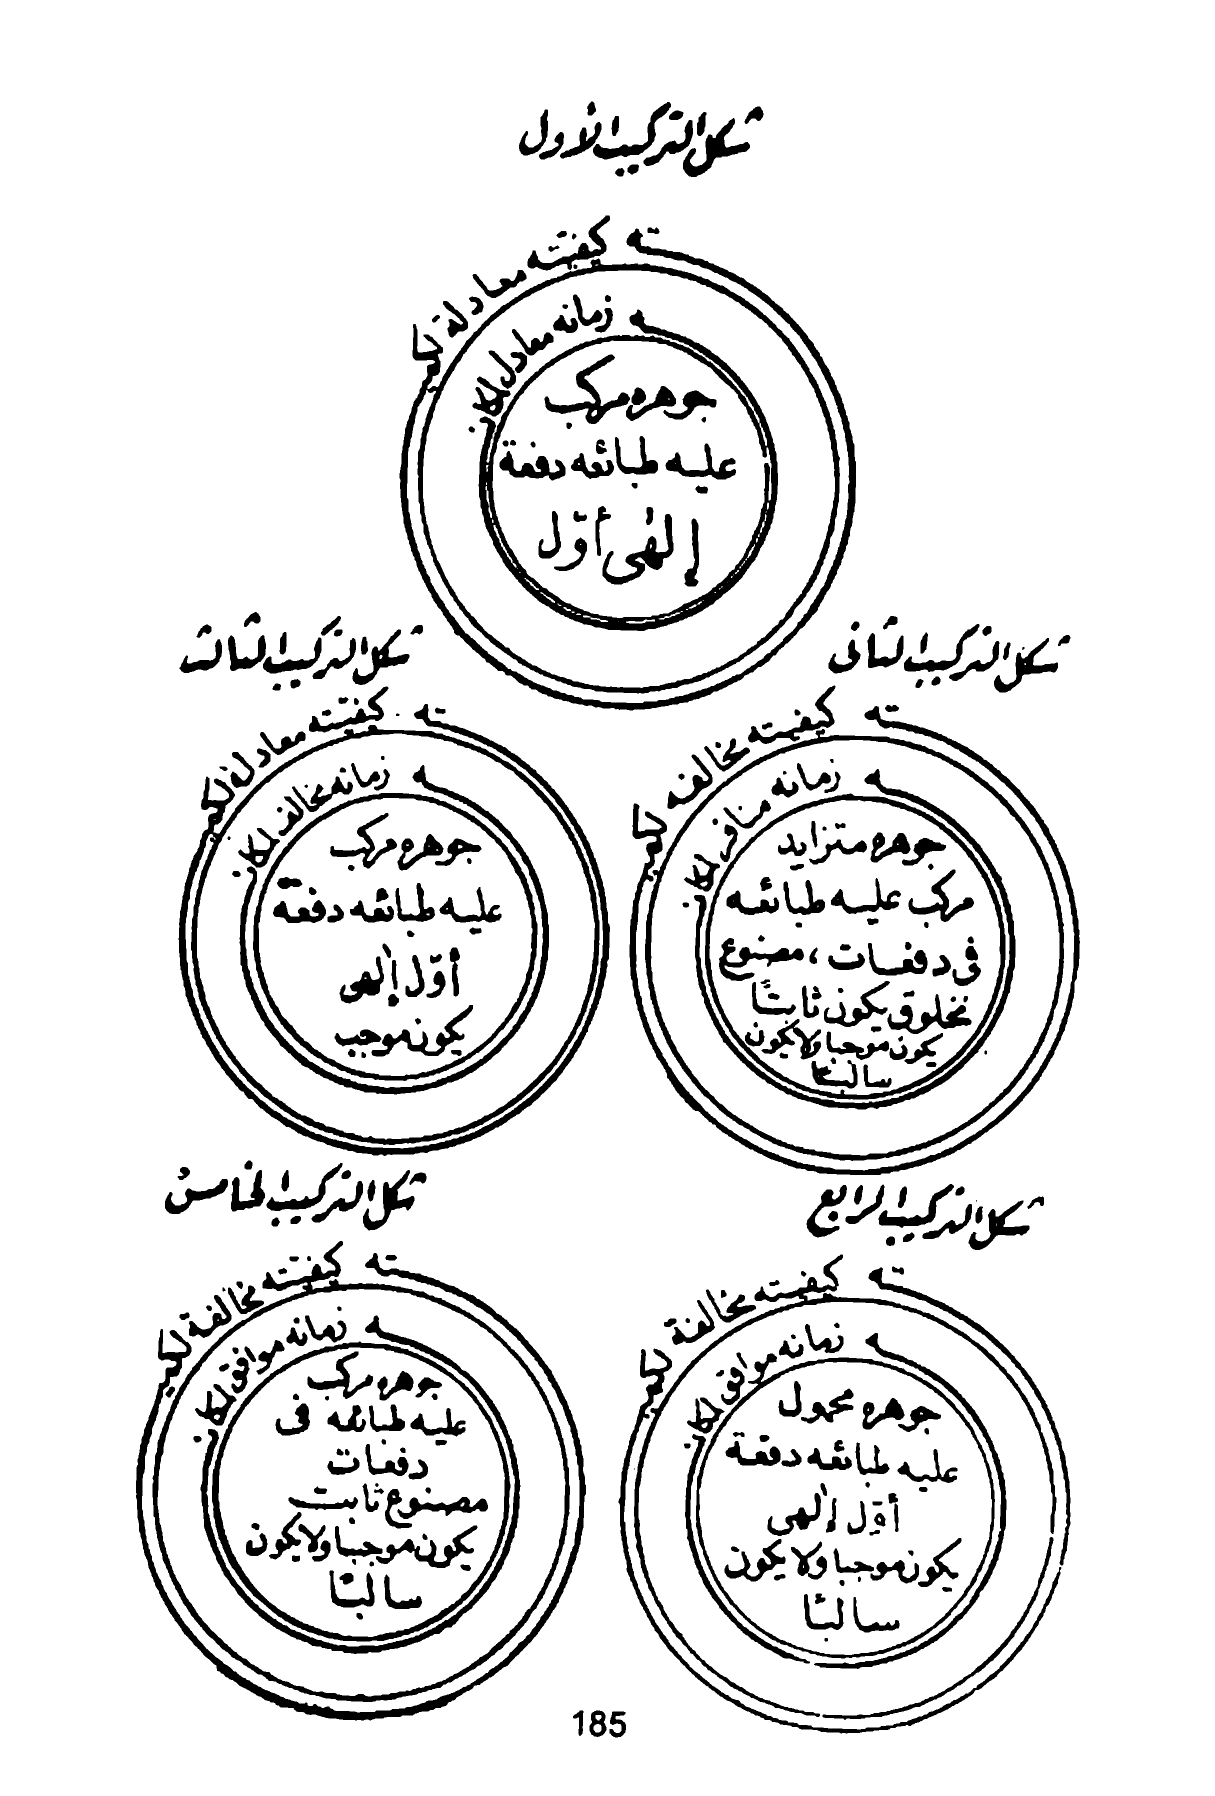 شكل التركيب الأول
كيفيته معادلة لكميته
زمانه معادل لمكانه
جوهره مركب
عليه طبائعه دفعة
إلهى أوّل
شكل التركيب الثانى
كيفيته مخالفة لكميته
زمانه منافر لمكانه
جوهره متزايد
مركب عليه طبائعه
فى دفعات ، مصنوع
مخلوق يكون ثابتاً
يكون موجبا ولا يكون
سالبًا
شكل التركيب الثالث
كيفيته معادلة لكميته
زمانه مخالف لمكانه
جوهره مركب
عليه طبائعه دفعة
أوّل إلهى
يكون موجب
شكل التركيب الرابع
كيفيته مخالفة لكميته
زمانه موافق لمكانه
جوهره محمول
عليه طبائعه دفعة
أوّل إلهى
يكون موجبا ولا يكون
سالبًا
شكل التركيب الخامس
كيفيته مخالفة لكميته
زمانه موافق لمكانه
جوهره مركب
عليه طبائعه فى
دفعات
مصنوع ثابت
يكون موجبا ولا يكون
سالبًا
185